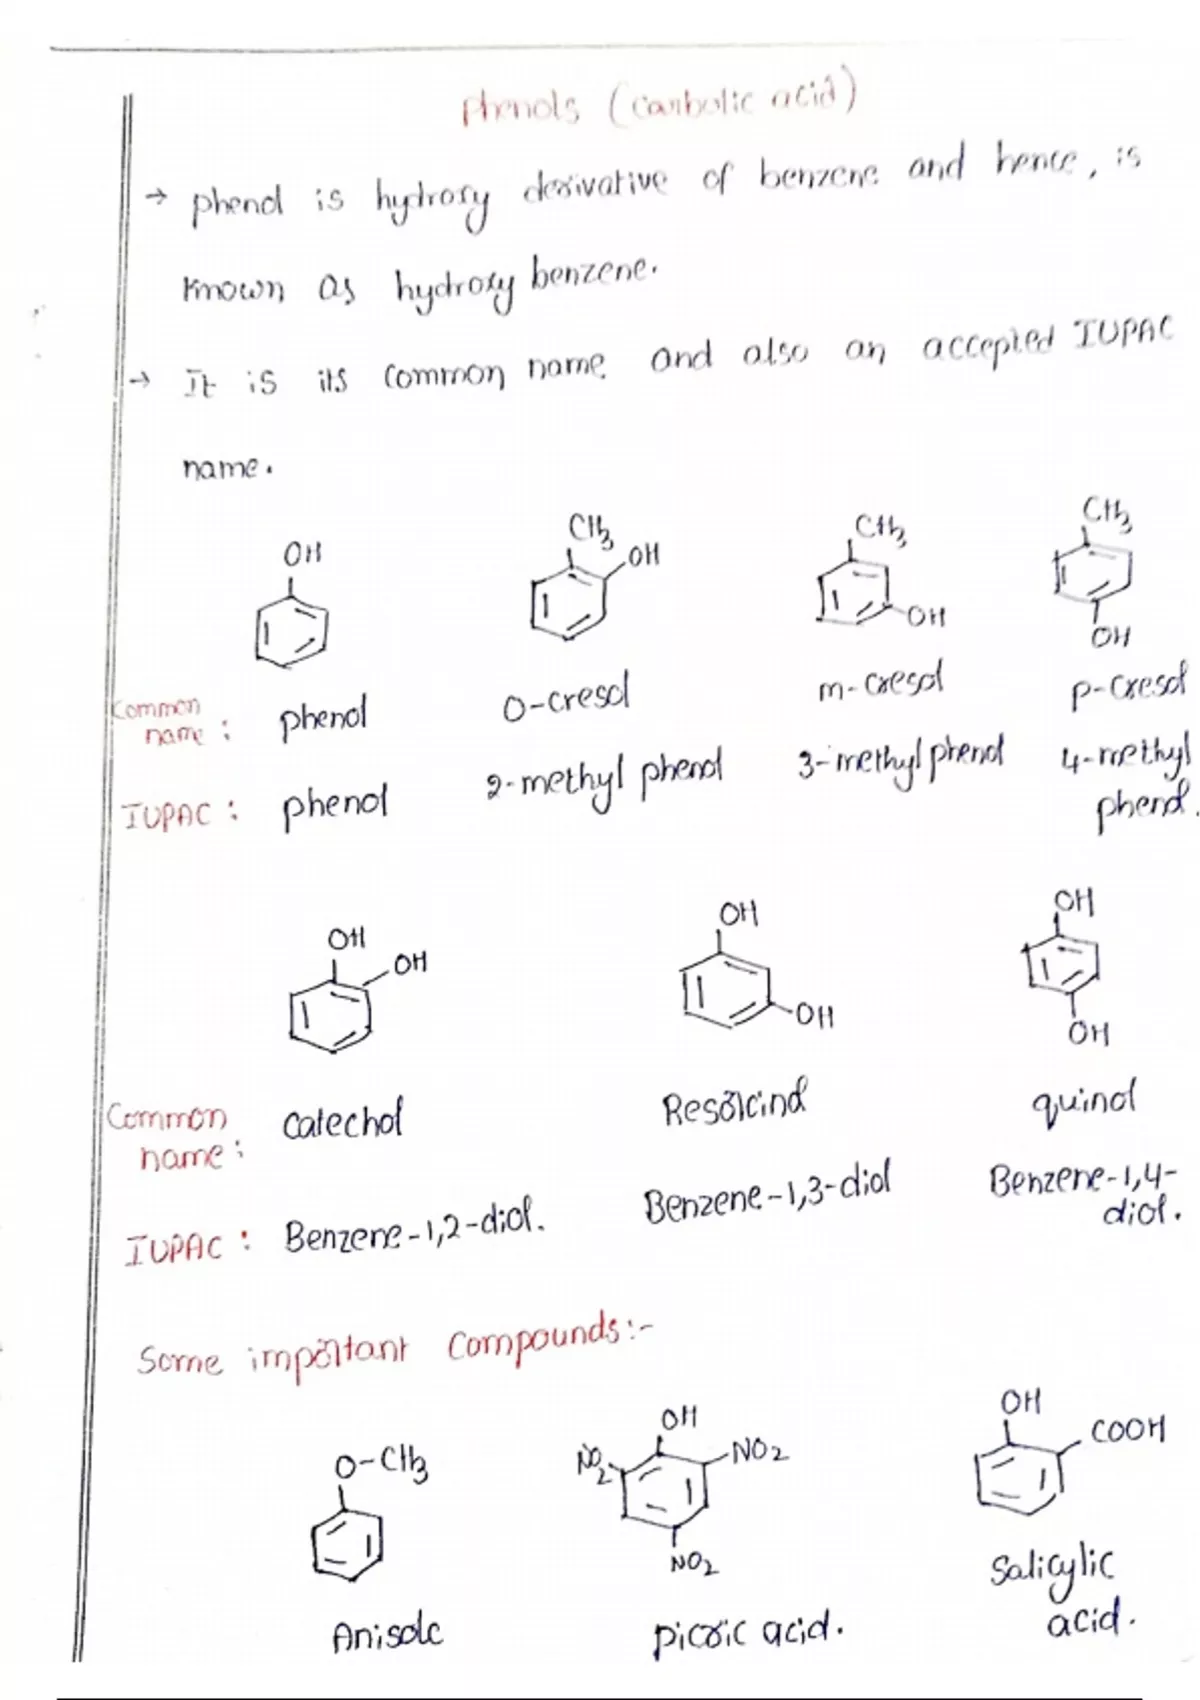 Phenols (Carbolic acid)
→ phenol is hydroxy derivative of benzene and hence, is
known as hydroxy benzene.
→ It is its common name and also an accepted IUPAC
name.
OH
CH3
OH
CH3
OH
CH3
OH
Common name : phenol o-cresol m-cresol p-cresol
IUPAC : phenol 2-methyl phenol 3-methyl phenol 4-methyl phenol.
OH
OH
OH
OH
OH
OH
Common name : catechol Resorcinol quinol
IUPAC : Benzene-1,2-diol. Benzene-1,3-diol Benzene-1,4-diol.
Some important Compounds:-
O-CH3
OH
NO2
NO2
NO2
OH
COOH
Anisole picric acid. Salicylic acid.